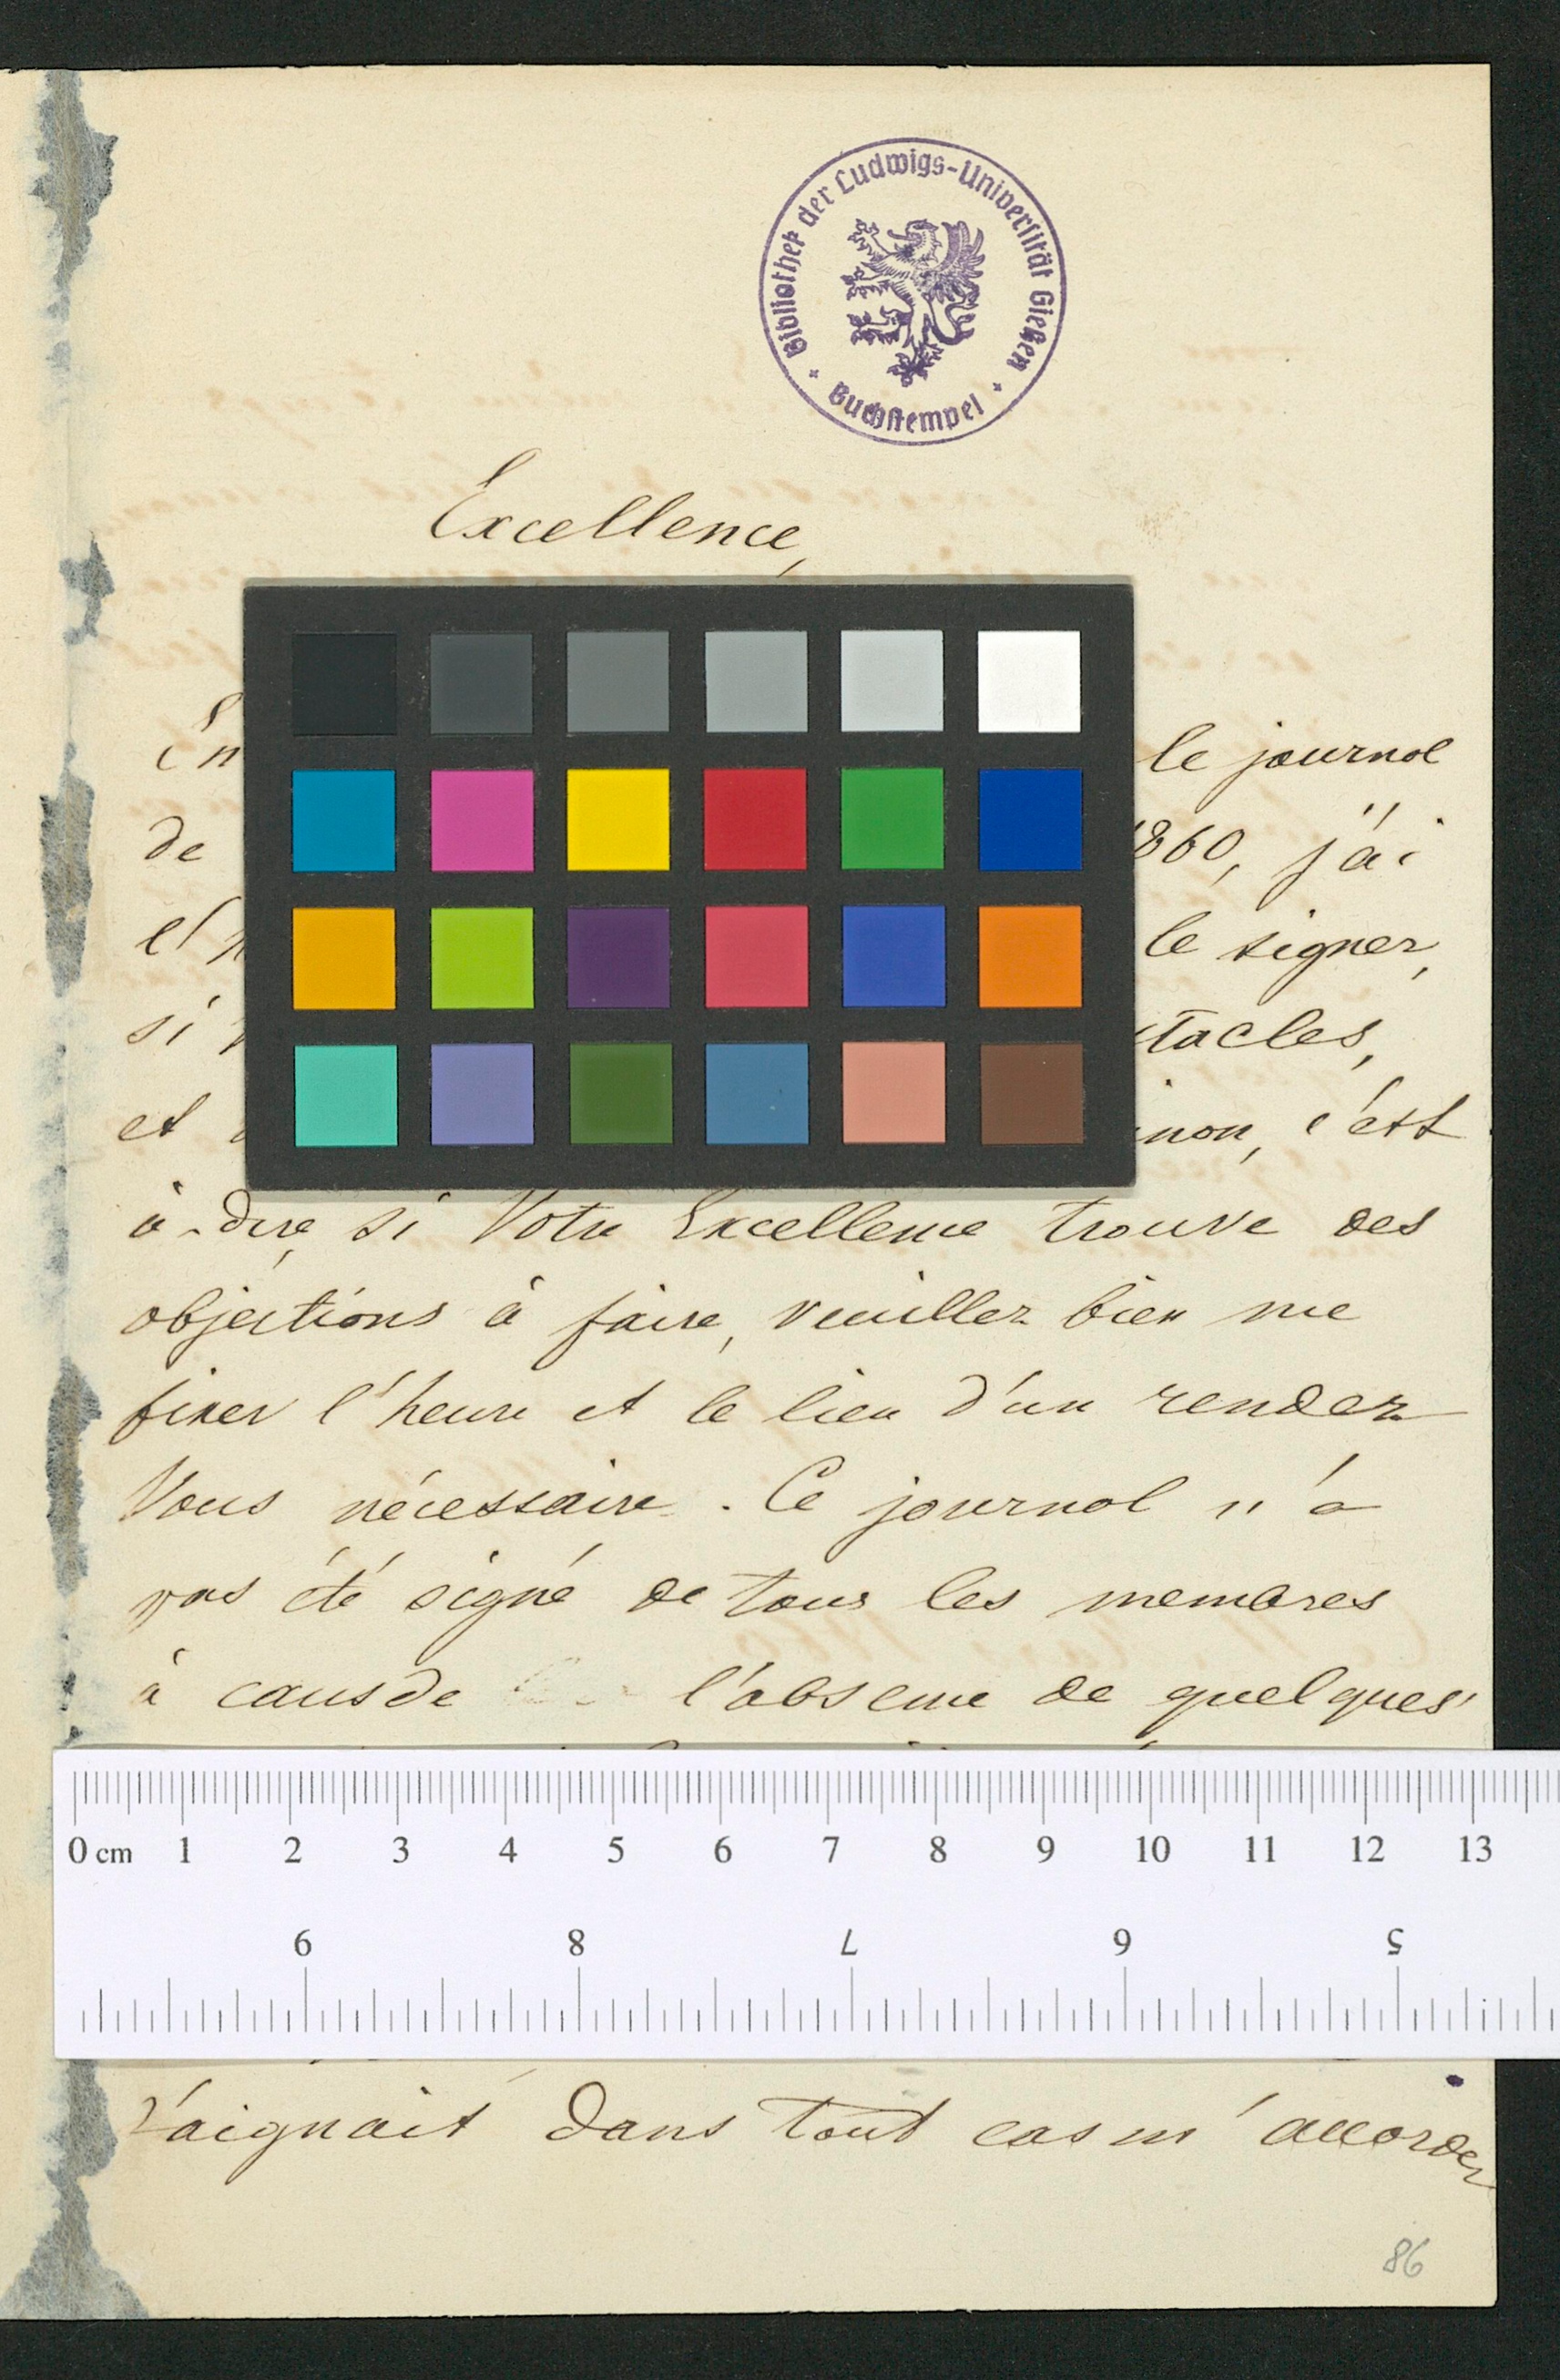 Bibliothek der Ludwigs-Universität Gießen
Buchstempel
Excellence,
En le journal
de 1860, j'ai
le signer,
si
et non, c'est
à-dire, si Votre Excellence trouve des
objections à faire, veuillez bien me
fixer l'heure et le lieu d'un rendez
Vous nécessaire. Ce journal n'a
pas été signé de tous les membres
à causde l'absence de quelques
0 cm 1 2 3 4 5 6 7 8 9 10 11 12 13
9 8 7 6 5
dans tout cas m'accorder
86